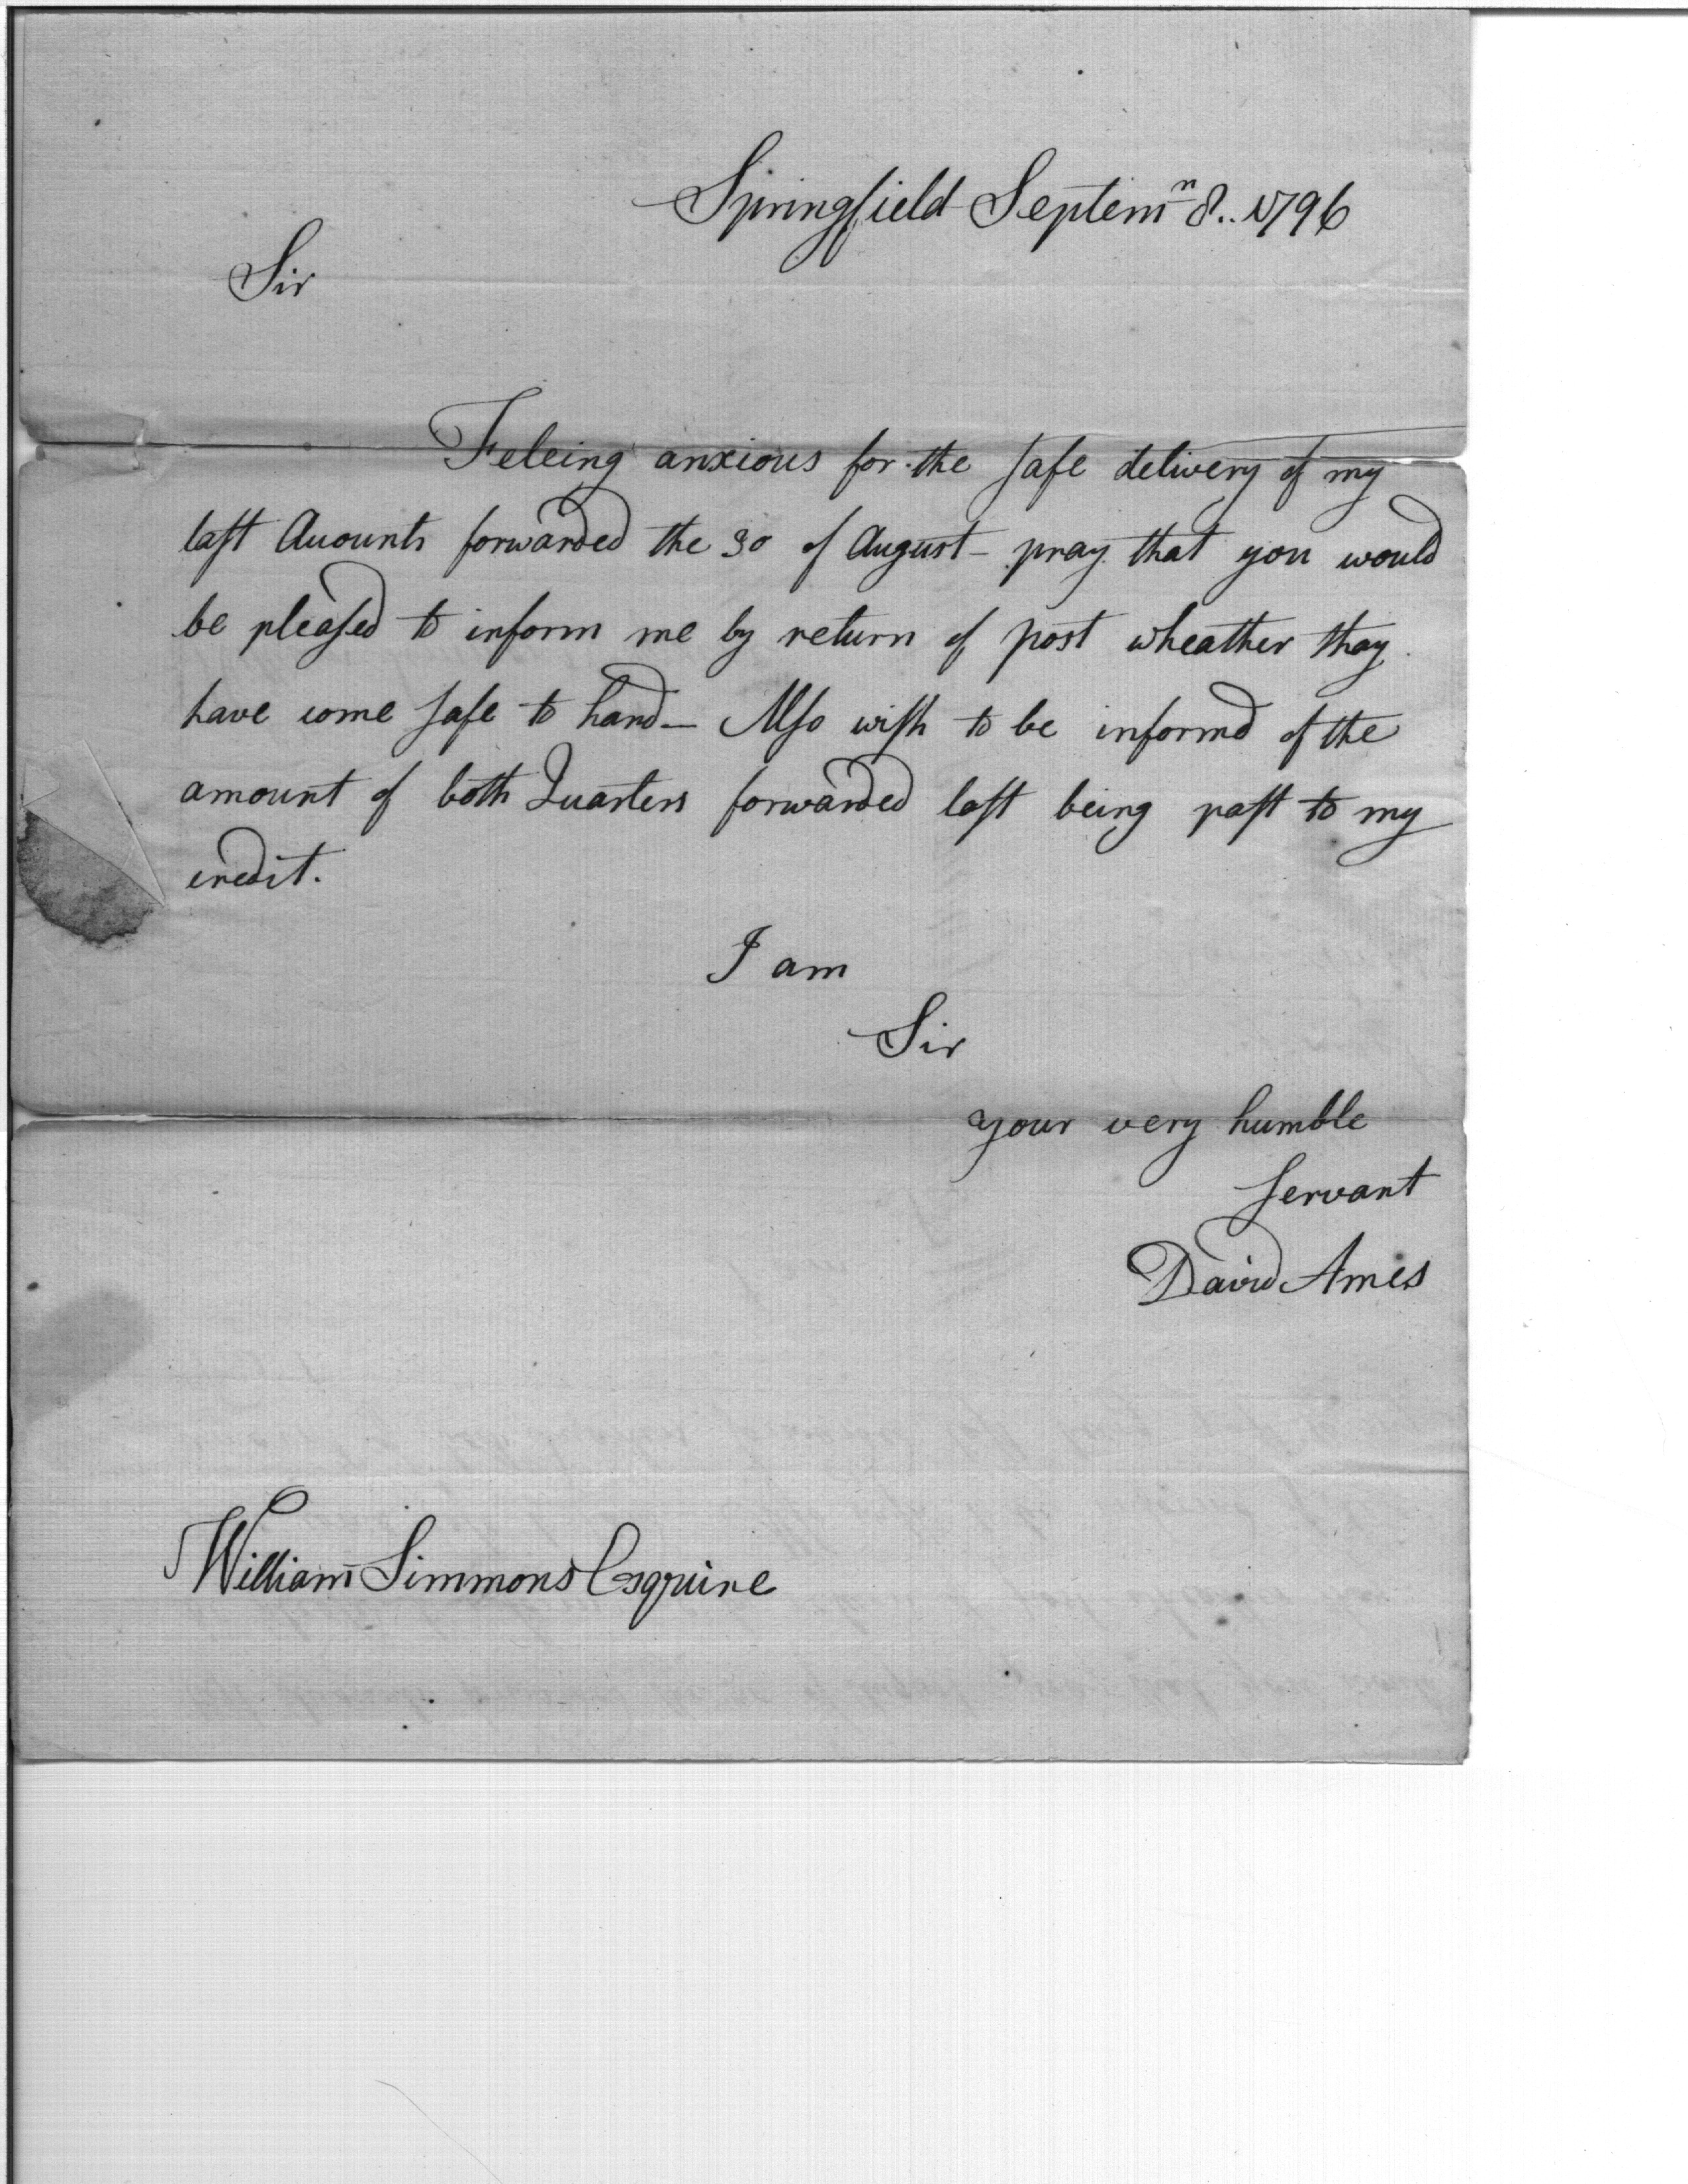 Springfield Septemr 8.. 1796
Sir
Feleing anxious for the safe delivery of my
last Accounts forwarded the 30 of August - pray that you would
be pleased to inform me by return of post wheather thay
have come safe to hand - Also wish to be informd of the
amount of both Quarters forwarded last being past to my
credit.
I am
Sir
your very humble
servant
David Ames
William Simmons Esquire